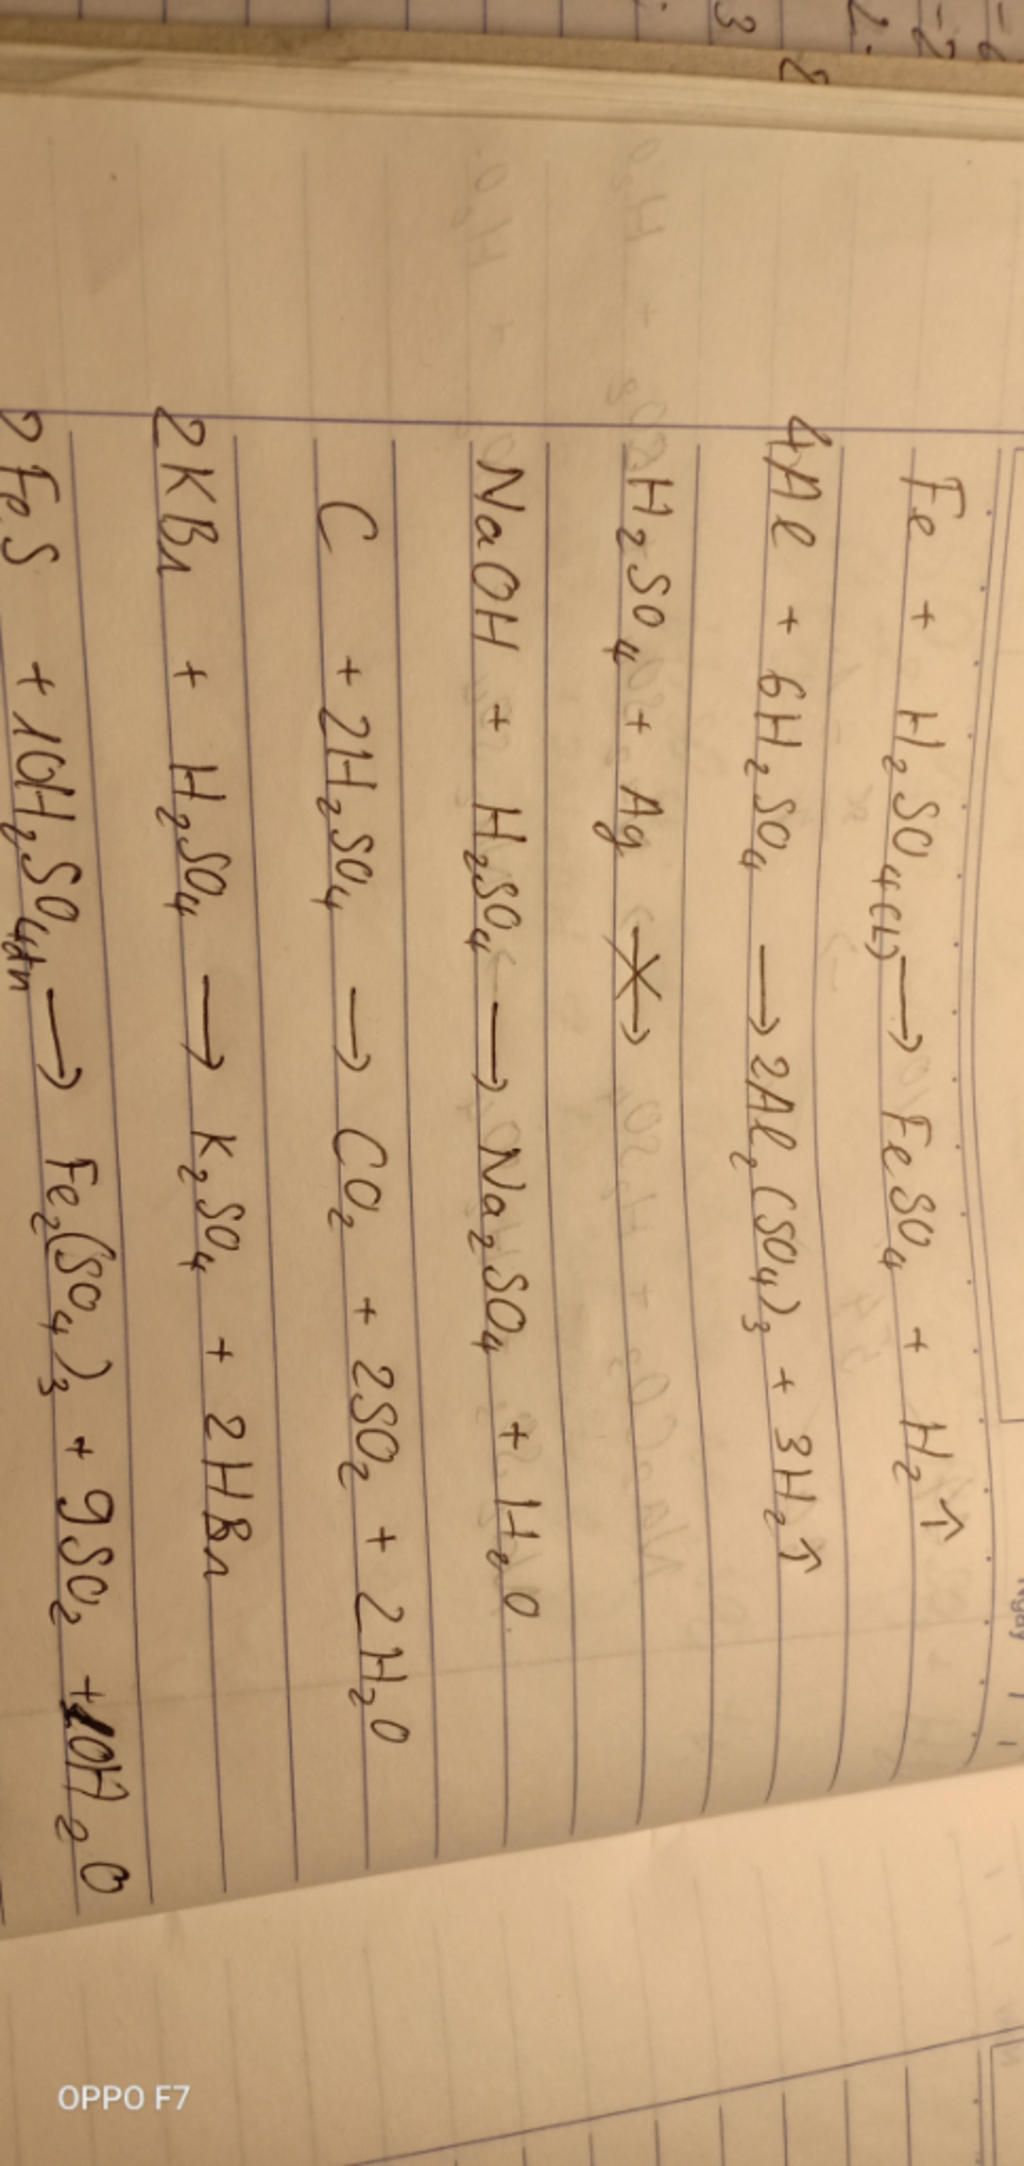 Fe + H₂SO₄(L) → FeSO₄ + H₂↑
4Al + 6H₂SO₄ → 2Al₂(SO₄)₃ + 3H₂↑
H₂SO₄ + Ag ↛
NaOH + H₂SO₄ → Na₂SO₄ + H₂O
C + 2H₂SO₄ → CO₂ + 2SO₂ + 2H₂O
2KBr + H₂SO₄ → K₂SO₄ + 2HBr
2FeS + 10H₂SO₄đn → Fe₂(SO₄)₃ + 9SO₂ + 10H₂O
Ngày
OPPO F7